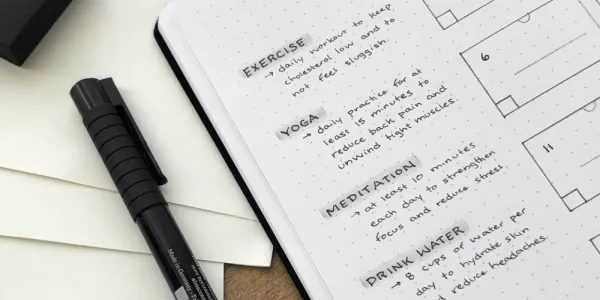 EXERCISE
→ daily workout to keep
cholesterol low and to
not feel sluggish.
YOGA
→ daily practice for at
least 15 minutes to
reduce back pain and
unwind tight muscles.
MEDITATION
→ at least 10 minutes
each day to strengthen
focus and reduce stress.
DRINK WATER
→ 8 cups of water per
day to hydrate skin
and reduce headaches.
6
11
Made in Germany